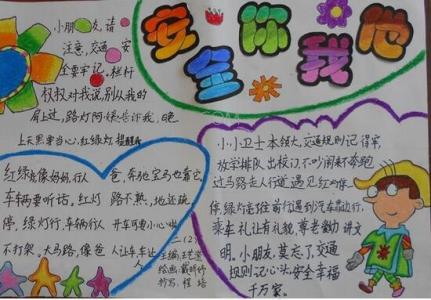 安全你我他
小朋友,请
注意,交通安
全要牢记。栏杆
杈杈对我说,别从我的
肩上过,路灯阿姨告诉我,晚
上天黑要当心,红绿灯提醒我
红绿灯像妈妈,行人
车辆要听话,红灯
停,绿灯行,车辆行人
不打架。大马路,像爸
爸,奔驰宝马也靠它,
路不熟,地还疏,
开车可要小心啦
人让车,车让
人
二(2)
主编:王艺莹
绘画:戴妍婷
抄写:程培
小小卫士本领大,交通规则记得牢,
放学排队出校门,不吵闹来不奔跑
过马路走人行道,遇见红灯停一停
停,绿灯走在前行遇到汽车靠边行,
乘车礼让有礼貌,尊老爱幼讲文
明。小朋友,莫忘了,交通
规则记心头,安全幸福
千万家。